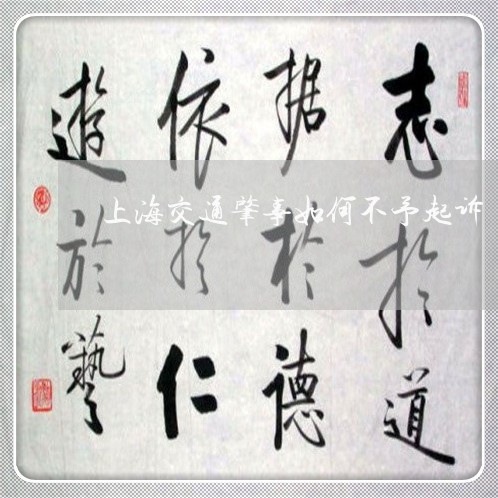 志扵道
据於德
依扵仁
遊於藝
上海交通肇事如何不予起诉